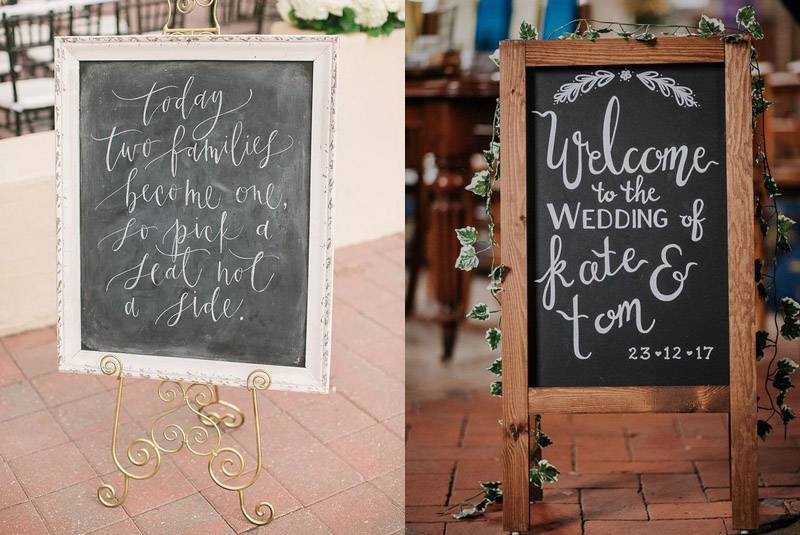 today
two families
become one,
so pick a
seat not
a side.
Welcome
to the
WEDDING of
kate &
tom
23•12•17